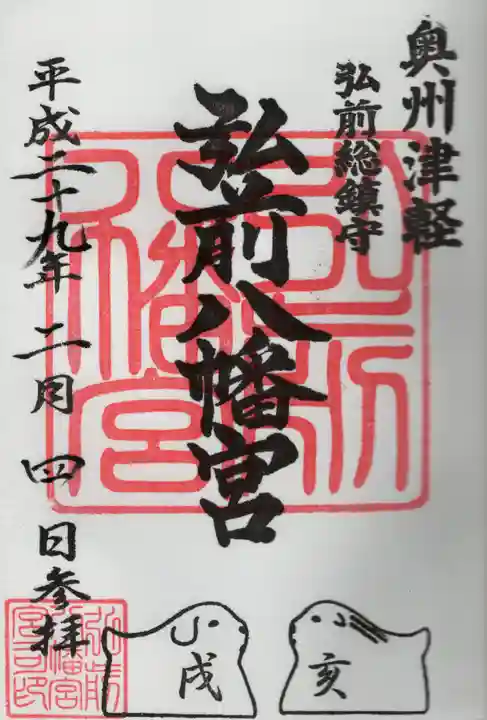 奥州津軽
弘前総鎮守
弘前八幡宮
平成二十九年 二月 四日参拝
戌
亥
弘前八幡宮